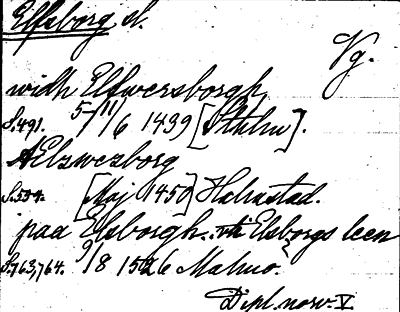 Elfsborg sl.
Vg.
widh Elfwersborgh
S.491. 5/11 6 1439 [Sthlm].
Aelzwezborg
S.534. [Maj 1450] Halmstad.
paa Elsborgh. vti Elsborgs leen
S.763,764. 9/8 1526 Malmö.
Dipl. norv. V